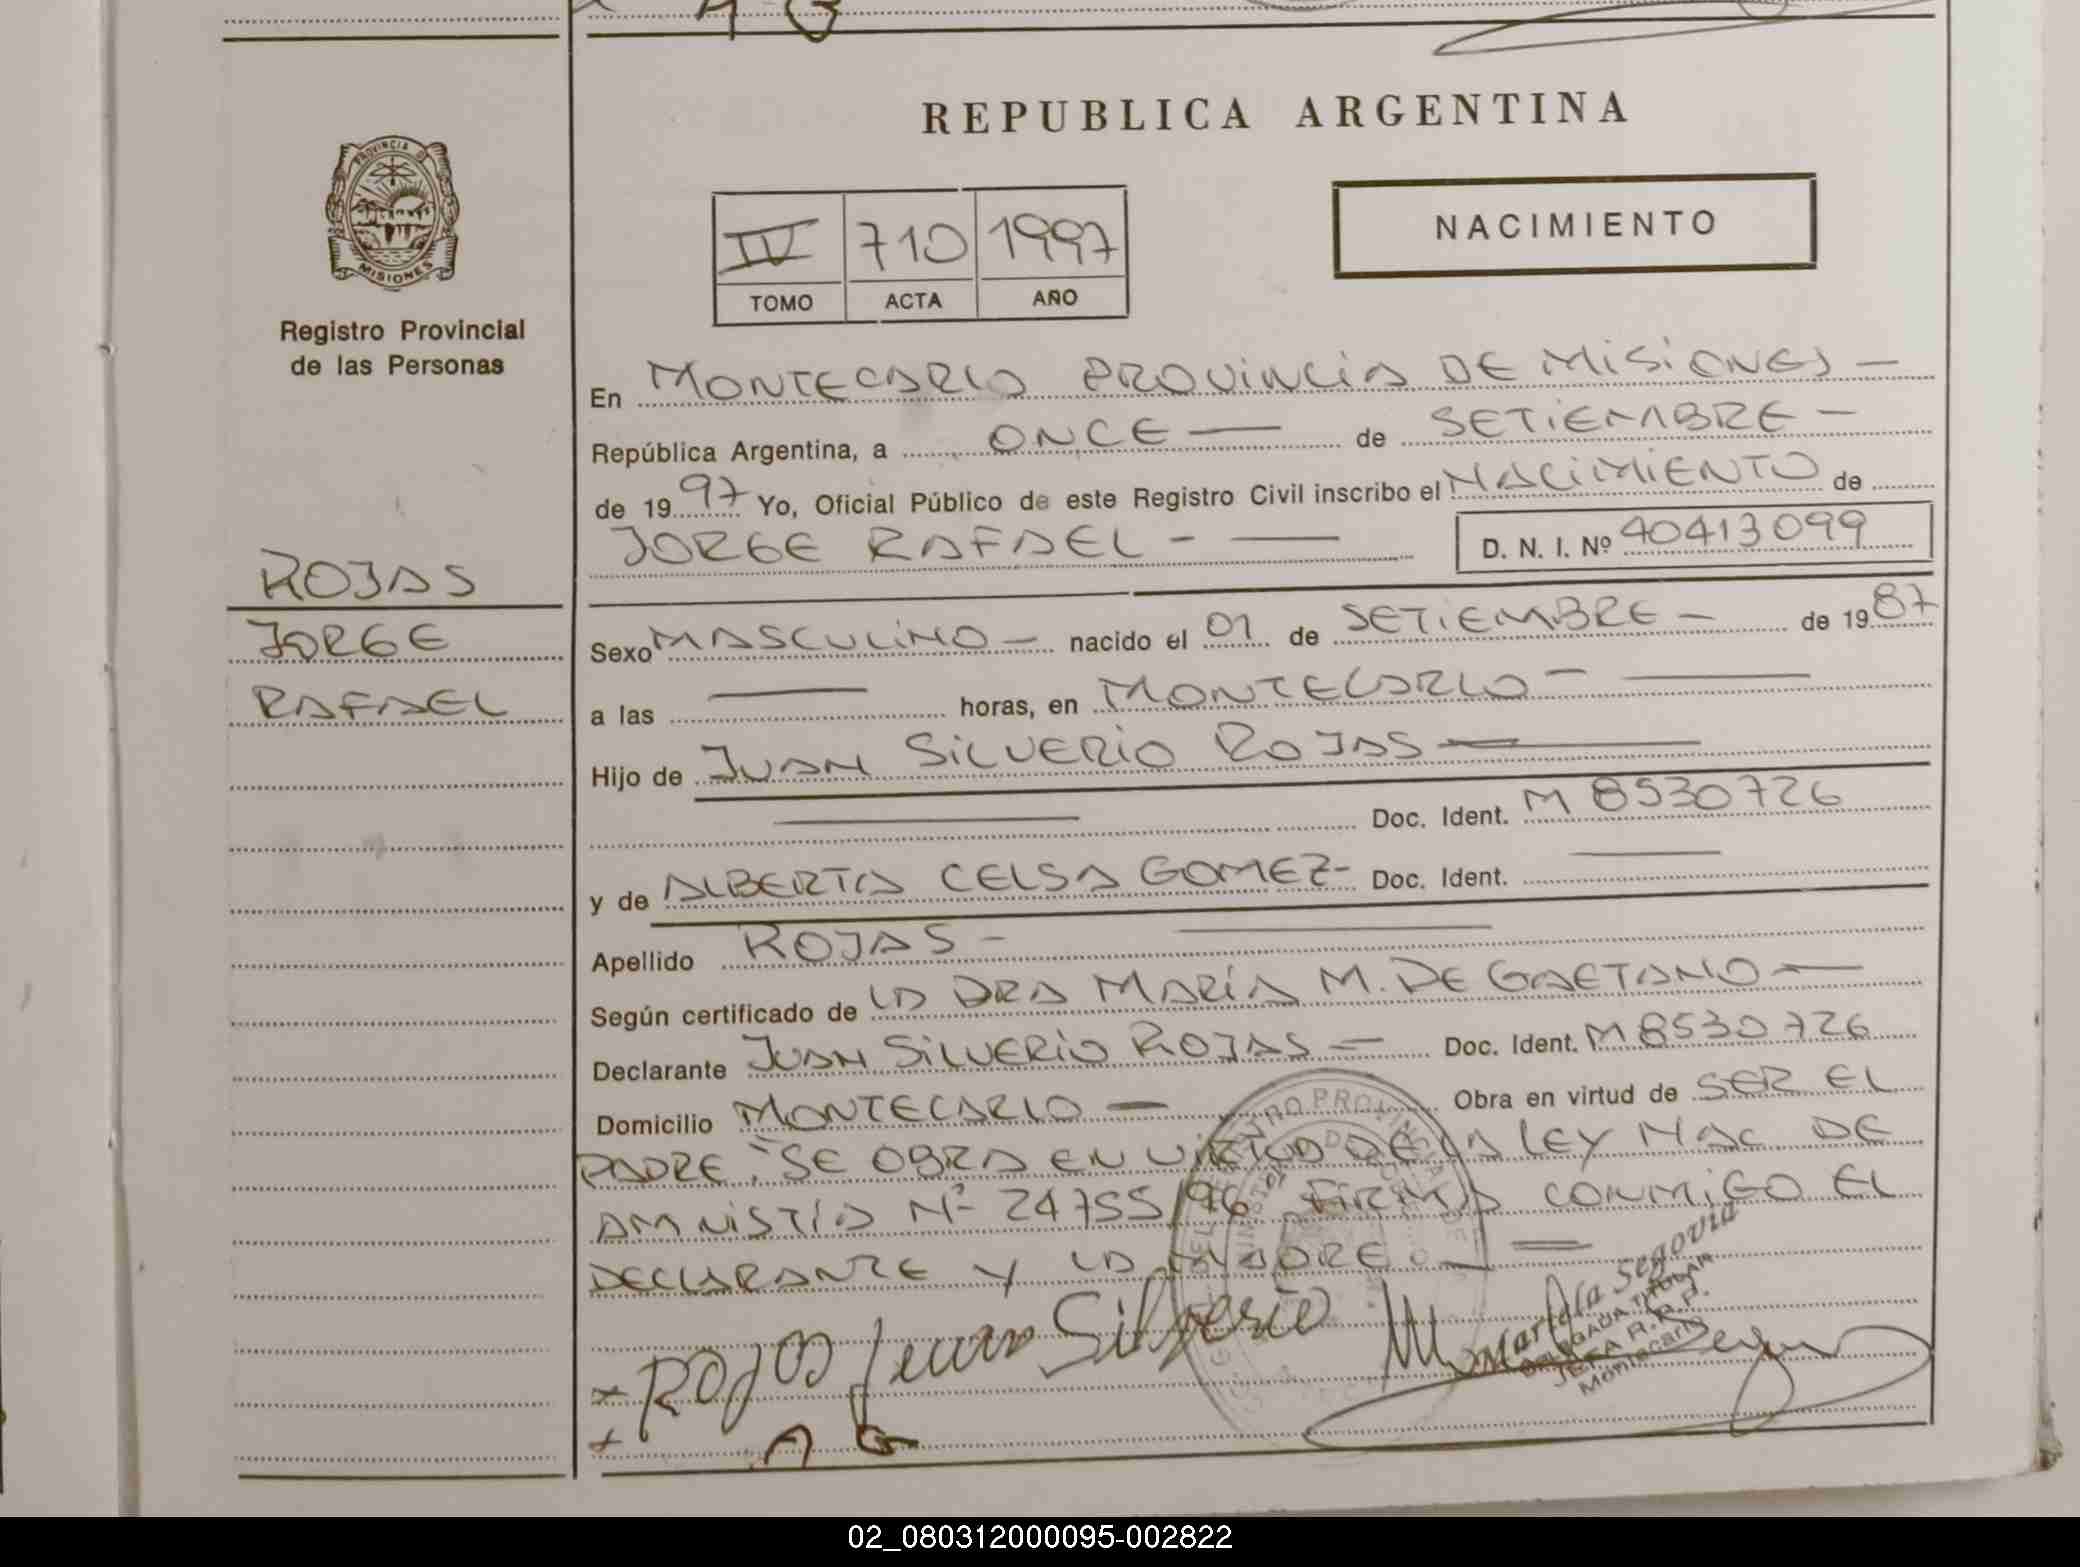 REPUBLICA ARGENTINA
PROVINCIA DE
MISIONES
Registro Provincial
de las Personas
IV 710 1997
TOMO ACTA AÑO
NACIMIENTO
En MONTECARLO PROVINCIA DE MISIONES —
República Argentina, a ONCE — de SETIEMBRE —
de 1997 Yo, Oficial Público de este Registro Civil inscribo el NACIMIENTO de
JORGE RAFAEL - — D. N. I. Nº 40413099
ROJAS
JORGE
RAFAEL
Sexo MASCULINO — nacido el 01 de SETIEMBRE — de 1987
a las — horas, en MONTECARLO — —
Hijo de JUAN SILVERIO ROJAS —
— Doc. Ident. M 8530726
y de ALBERTA CELSA GOMEZ- Doc. Ident. —
Apellido ROJAS — —
Según certificado de LA DRA MARÍA M. DE GAETANO —
Declarante JUAN SILVERIO ROJAS — Doc. Ident. M 8530726
Domicilio MONTECARLO — Obra en virtud de SER EL
PADRE. SE OBRA EN VIRTUD DE LA LEY NAC DE
AMNISTÍA Nº 24755/96 FIRMA CONMIGO EL
DECLARANTE Y LA MADRE. —
Rojas Juan Silverio
A G
Mariela Segovia
DELEGADA TITULAR
JEFA R.P.P.
Montecarlo
02_080312000095-002822